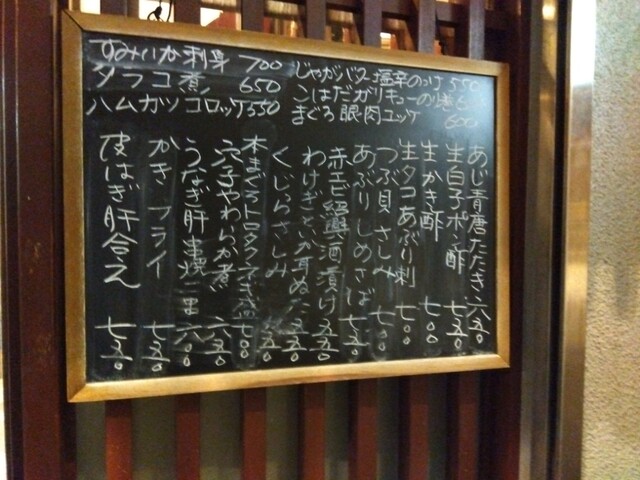 すみいか刺身 700
タコ煮 650
ハムカツコロッケ 550
じゃがバタ塩辛のっけ 550
こはだガリキューの
まぐろ眼肉ユッケ 600
あじ青唐たたき 六五〇
生白子ポン酢 七五〇
生かき酢 七〇〇
生タコあぶり刺 七〇〇
つぶ貝さしみ 七五〇
あぶりしめさば 七五〇
赤エビ紹興酒漬け 五五〇
わけぎといか耳ぬた 五五〇
くじらさしみ 五〇
本まぐろトロタク 七〇〇
穴子やわらか煮 六五〇
うなぎ肝串焼二串 六〇〇
かきフライ 七五〇
皮はぎ肝合え 七五〇